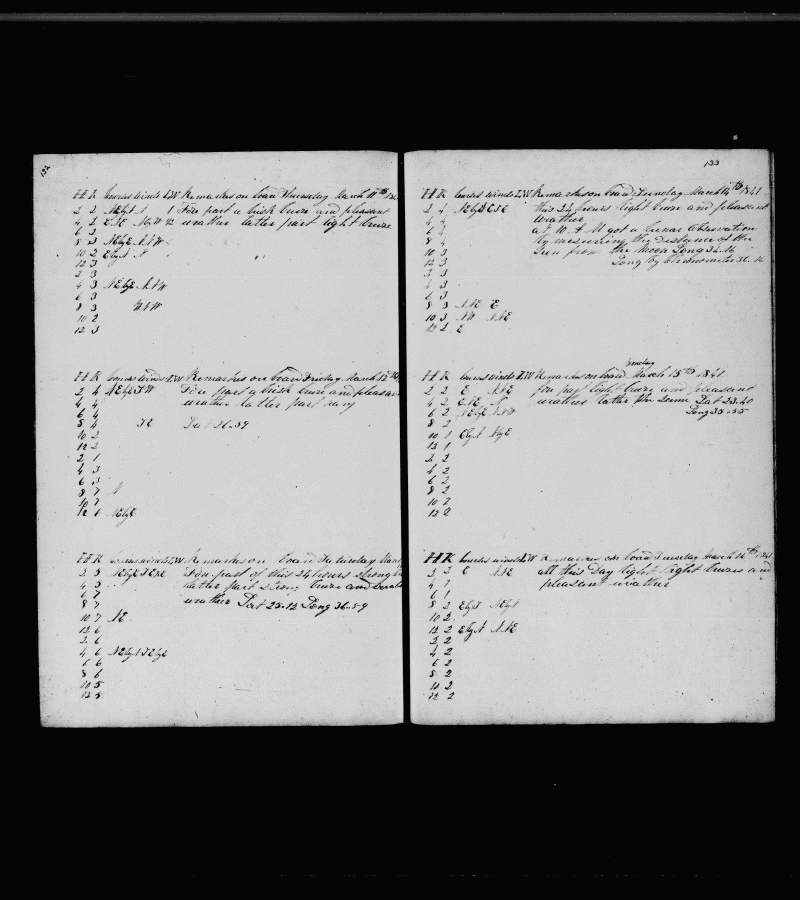 132
H K Courses winds L.W Remarks on board Thursday March 11th 184
2 2 NEbyN N 1 Fore part a brisk breeze and pleasant
4 2 ENE NbyW ½ weather latter part light breeze
6 2
8 3 NEbyE NNW
10 2 EbyN N
12 3
2 3
4 3 NEbyE NNW
6 3
8 3 NNW
10 2
12 3
H K Courses winds L.W Remarks on board Friday March 12th
2 4 NEbyE NW Fore part a brisk breeze and pleasant
4 4 weather latter part
6 4
8 4 SE Lat 26.39
10 2
12 2
2 1
4 3
6 3
8 7 S
10 7
12 6 NEbyE
H K Courses winds L.W Remarks on board Saturday March
2 8 NEbyE SESE Fore part of this 24 hours strong
4 5 latter part strong breeze and
6 7 weather Lat 25.12 Long 36.59
8 7
10 7 NE
12 6
2 6
4 6 NEbyN SEbyE
6 6
8 6
10 5
12 5
133
H K Courses winds L.W Remarks on board Sunday March 14th 1841
2 4 NEbyE ESE this 24 hours light breeze and pleasant
4 4 weather
6 4 at 10 AM got a lunar Observation
8 4 by measuring the distance of the
10 2 Sun from the Moon Long 36.16
12 3 Long by Chronometer 36.16
2 3
4 3
6 3
8 3 NNE E
10 3 NE NNE
12 2 E
Monday
H K Courses winds L.W Remarks on board March 15th 1841
2 2 E NNE fore part light breeze and pleasant
4 2 ENE N weather latter the same Lat 23.40
6 2 NEbyE NNW Long 35.55
10 1 EbyN NbyE
12 1
2 2
4 2
6 2
8 2
10 2
12 2
H K Courses winds L.W Remarks on board Tuesday March 16th 1841
2 2 E NNE all this Day light light breezes and
4 1 pleasant weather
6 1
8 2 EbyS NEbyN
10 2
12 2 EbyN NNE
2 2
4 2
6 2
8 2
10 2
12 2